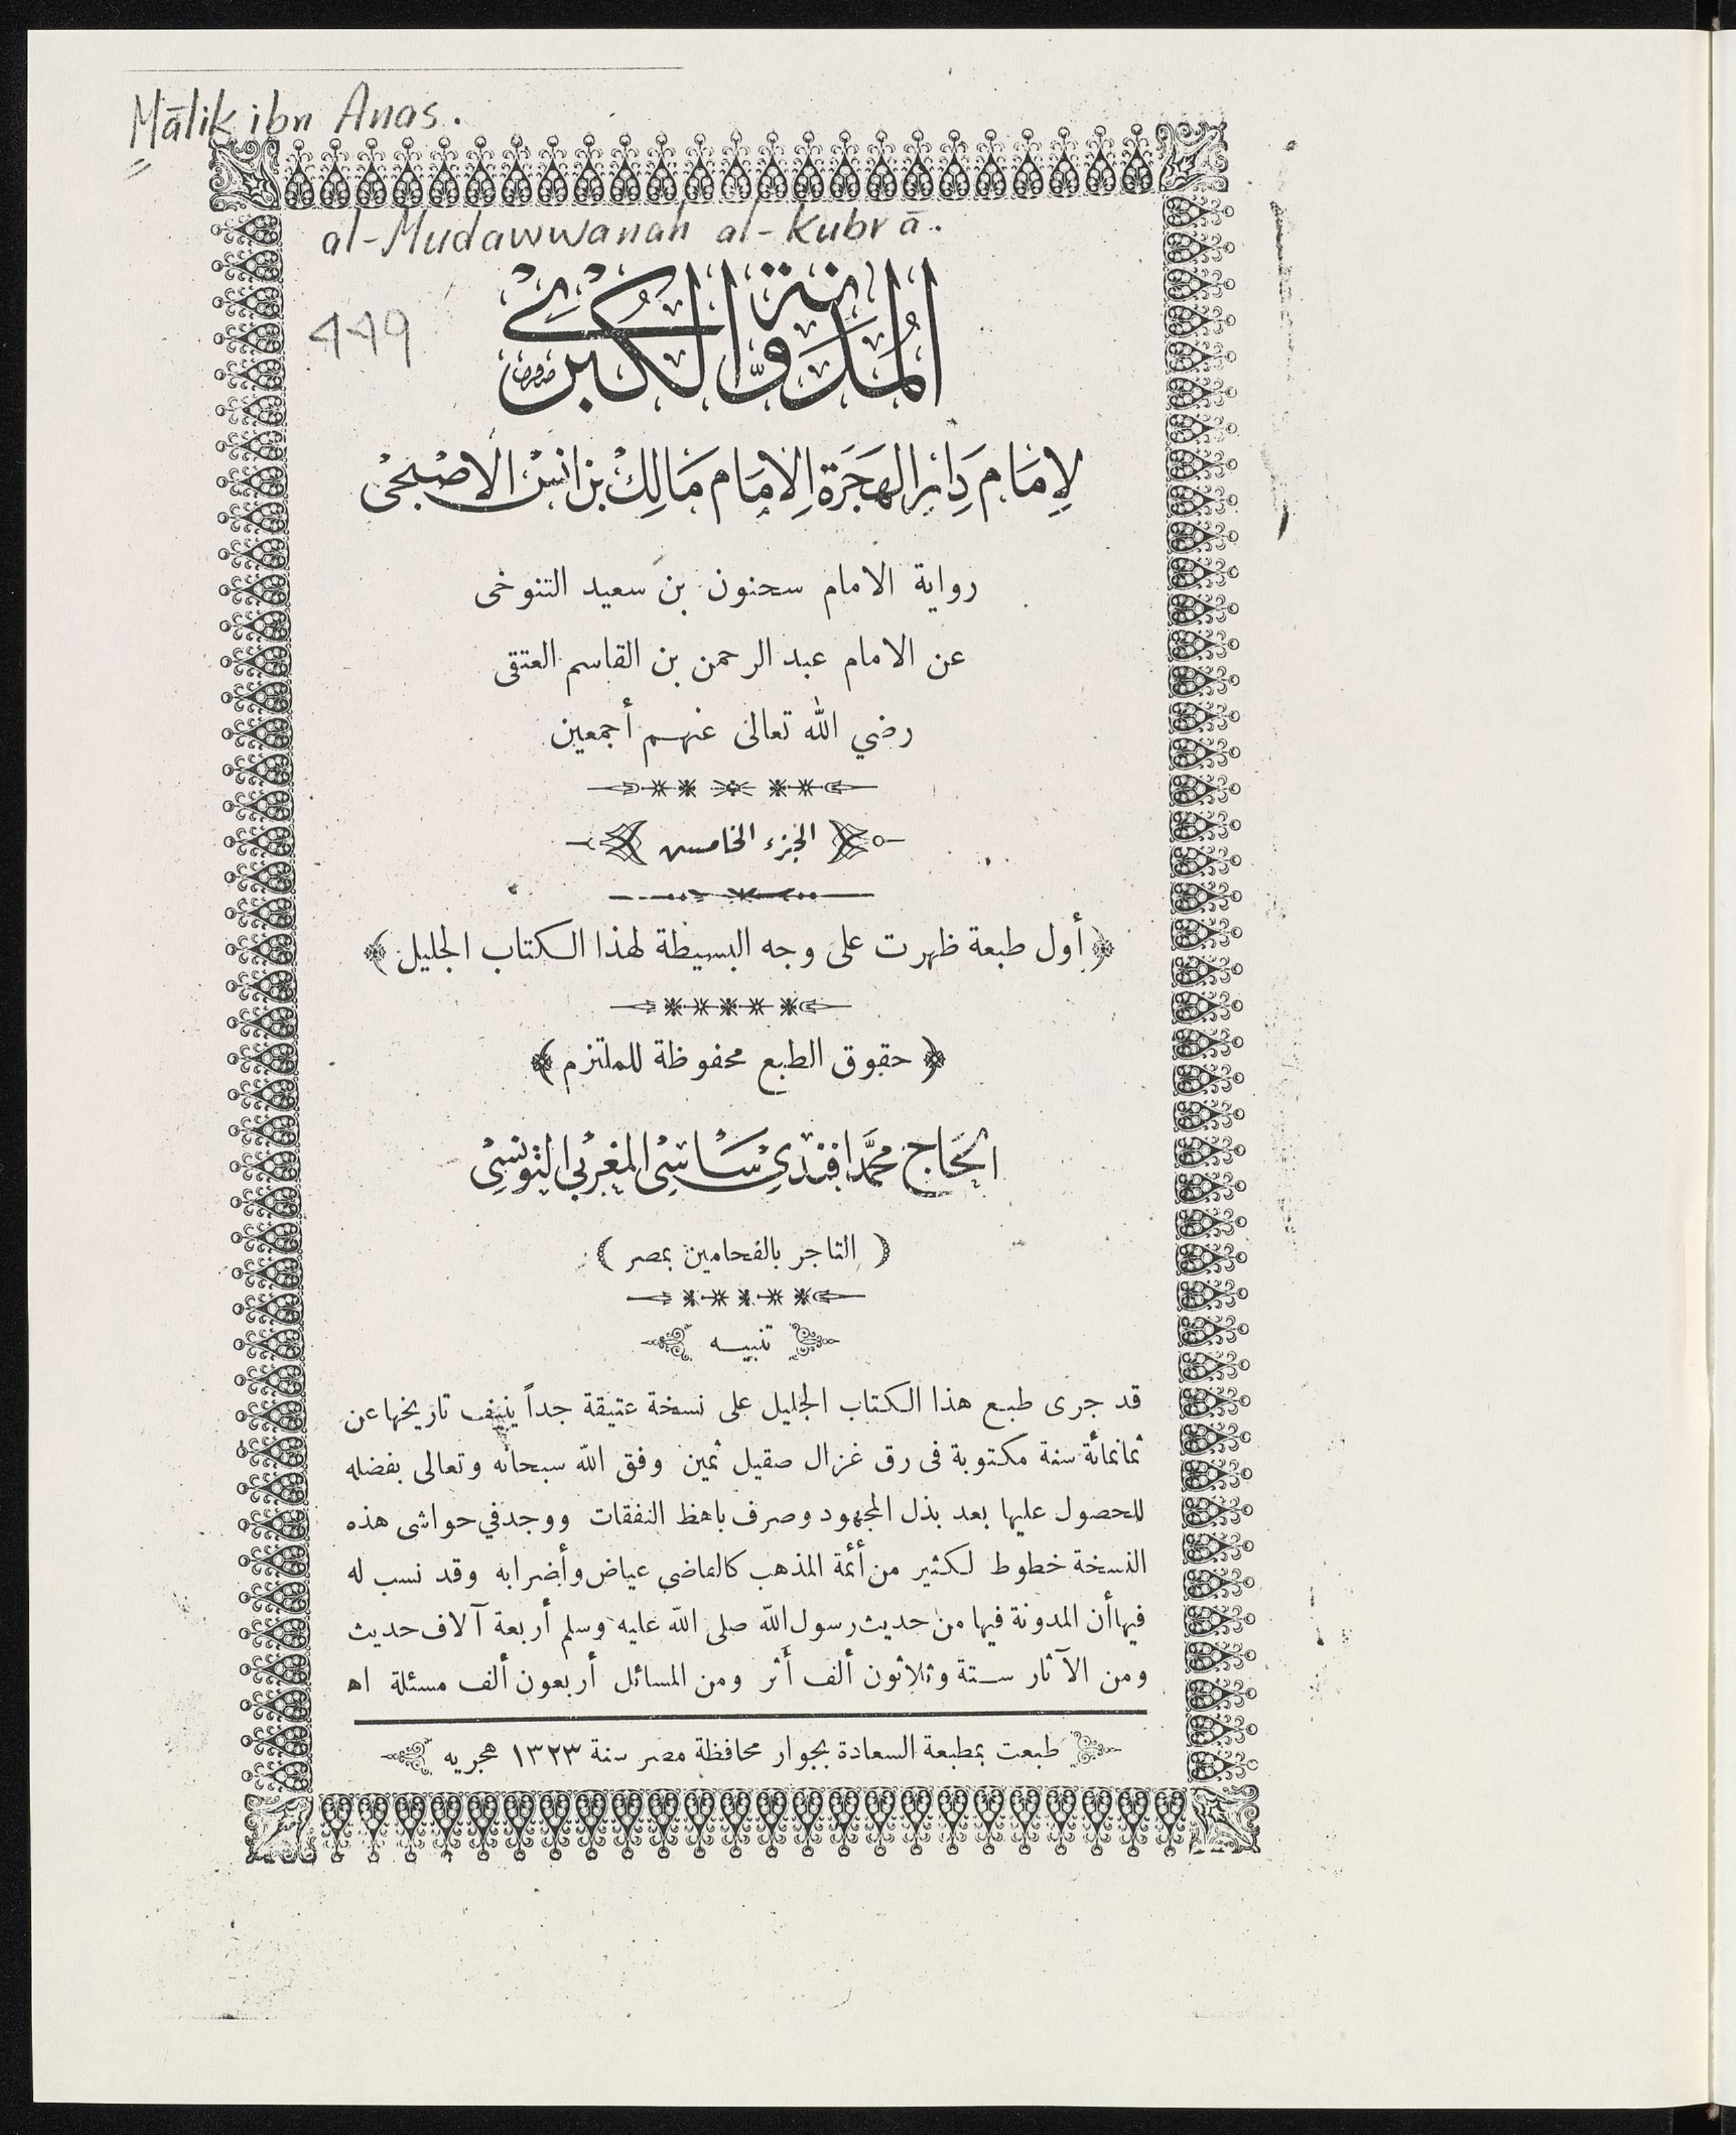 Mālik ibn Anas.
al-Mudawwanah al-Kubrā.
449
المُدَوَّنة الكُبْرى
لإِمَام دَار الهَجَرَة الإمَام مَالِكْ بن انسْ الاصْبحْى
رواية الامام سحنون بن سعيد التنوخى
عن الامام عبد الرحمن بن القاسم العتقى
رضي الله تعالى عنهم أجمعين
الجزء الخامس
﴿ أول طبعة ظهرت على وجه البسيطة لهذا الكتاب الجليل ﴾
﴿ حقوق الطبع محفوظة للملتزم ﴾
الحَاج محمَّد افندى سَاسِى المغربى التونسِى
( التاجر بالفحامين بمصر )
تنبيه
قد جرى طبع هذا الكتاب الجليل على نسخة عتيقة جداً ينيف تاريخها عن
ثمانمائة سنة مكتوبة فى رق غزال صقيل ثمين وفق الله سبحانه وتعالى بفضله
للحصول عليها بعد بذل المجهود وصرف باهظ النفقات ووجد في حواشى هذه
النسخة خطوط لكثير من أئمة المذهب كالقاضي عياض وأضرابه وقد نسب له
فيها أن المدونة فيها من حديث رسول الله صلى الله عليه وسلم أربعة آلاف حديث
ومن الآثار ستة وثلاثون ألف أثر ومن المسائل أربعون ألف مسئلة اه
طبعت بمطبعة السعادة بجوار محافظة مصر سنة ١٣٢٣ هجريه